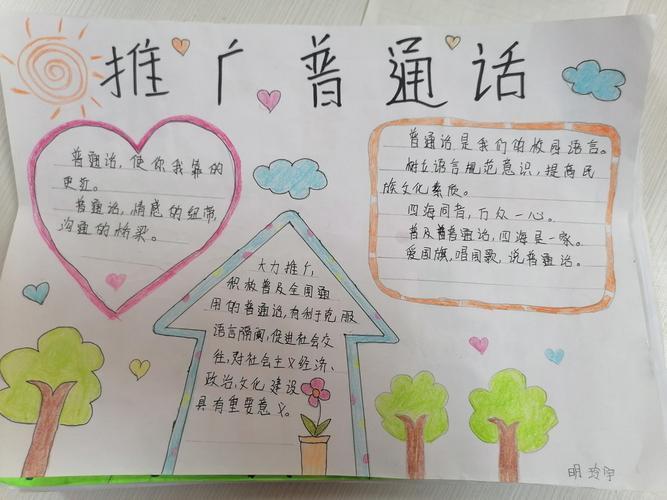 推广普通话
普通话，使你我靠的
更近。
普通话，情感的纽带，
沟通的桥梁。
大力推广，
积极普及全国通
用的普通话，有利于克服
语言隔阂，促进社会交
往，对社会主义经济、
政治，文化建设
具有重要意义。
普通话是我们的校园语言。
树立语言规范意识，提高民
族文化素质。
四海同音，万众一心。
普及普通话，四海是一家。
爱国旗，唱国歌，说普通话。